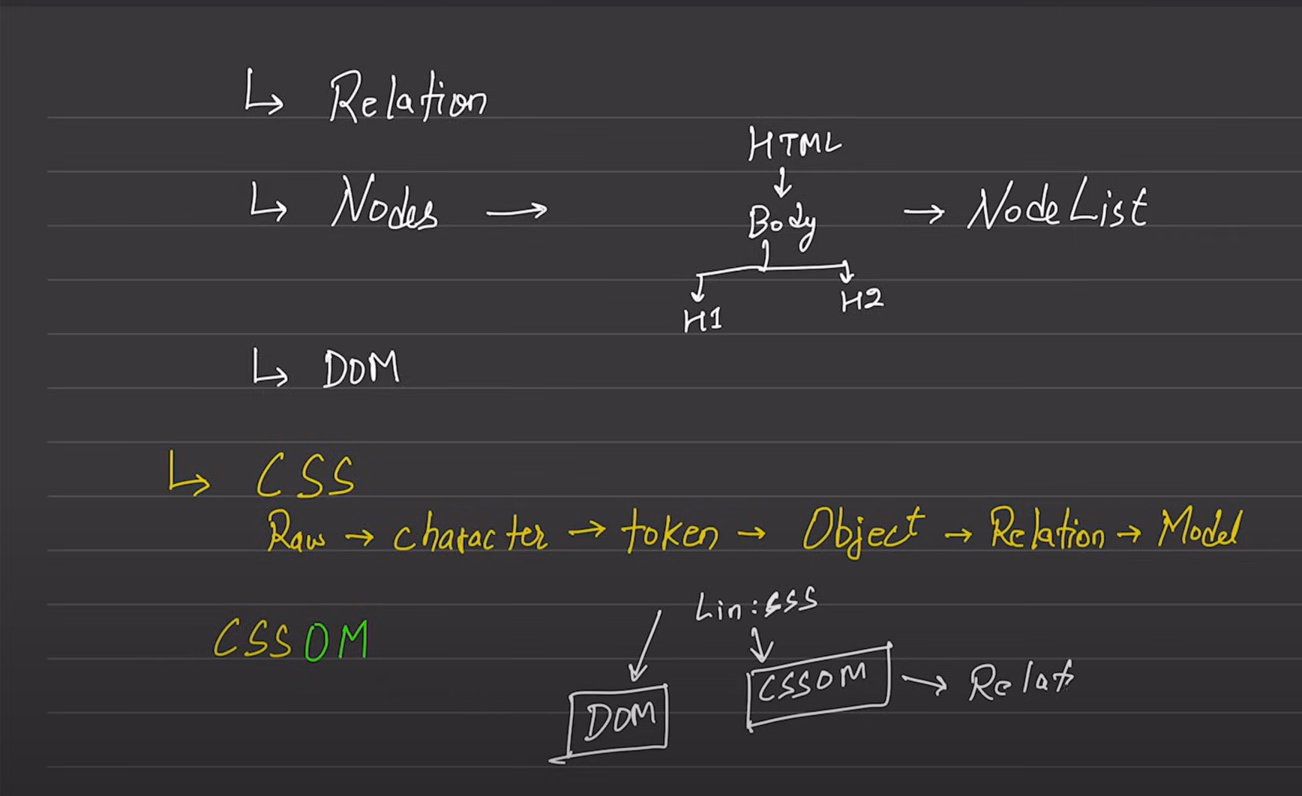 ↳ Relation
HTML
↳ Nodes → Body → NodeList
H1 H2
↳ DOM
↳ CSS
Raw → character → token → Object → Relation → Model
Lin:css
CSSOM
DOM CSSOM → Relat